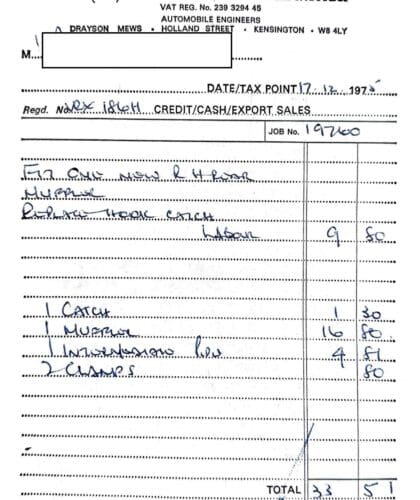 VAT REG. No. 239 3294 45
AUTOMOBILE ENGINEERS
DRAYSON MEWS • HOLLAND STREET • KENSINGTON • W8 4LY
M
DATE/TAX POINT 17.12.1975
Regd. No. 186H CREDIT/CASH/EXPORT SALES
JOB No. 19760
FIT ONE NEW R H REAR
MUFFLER
REPLACE HOOK CATCH
LABOUR 9 80
1 CATCH 1 30
1 MUFFLER 16 80
1 INTERMEDIATE PIPE 4 81
2 CLAMPS 80
TOTAL 33 51